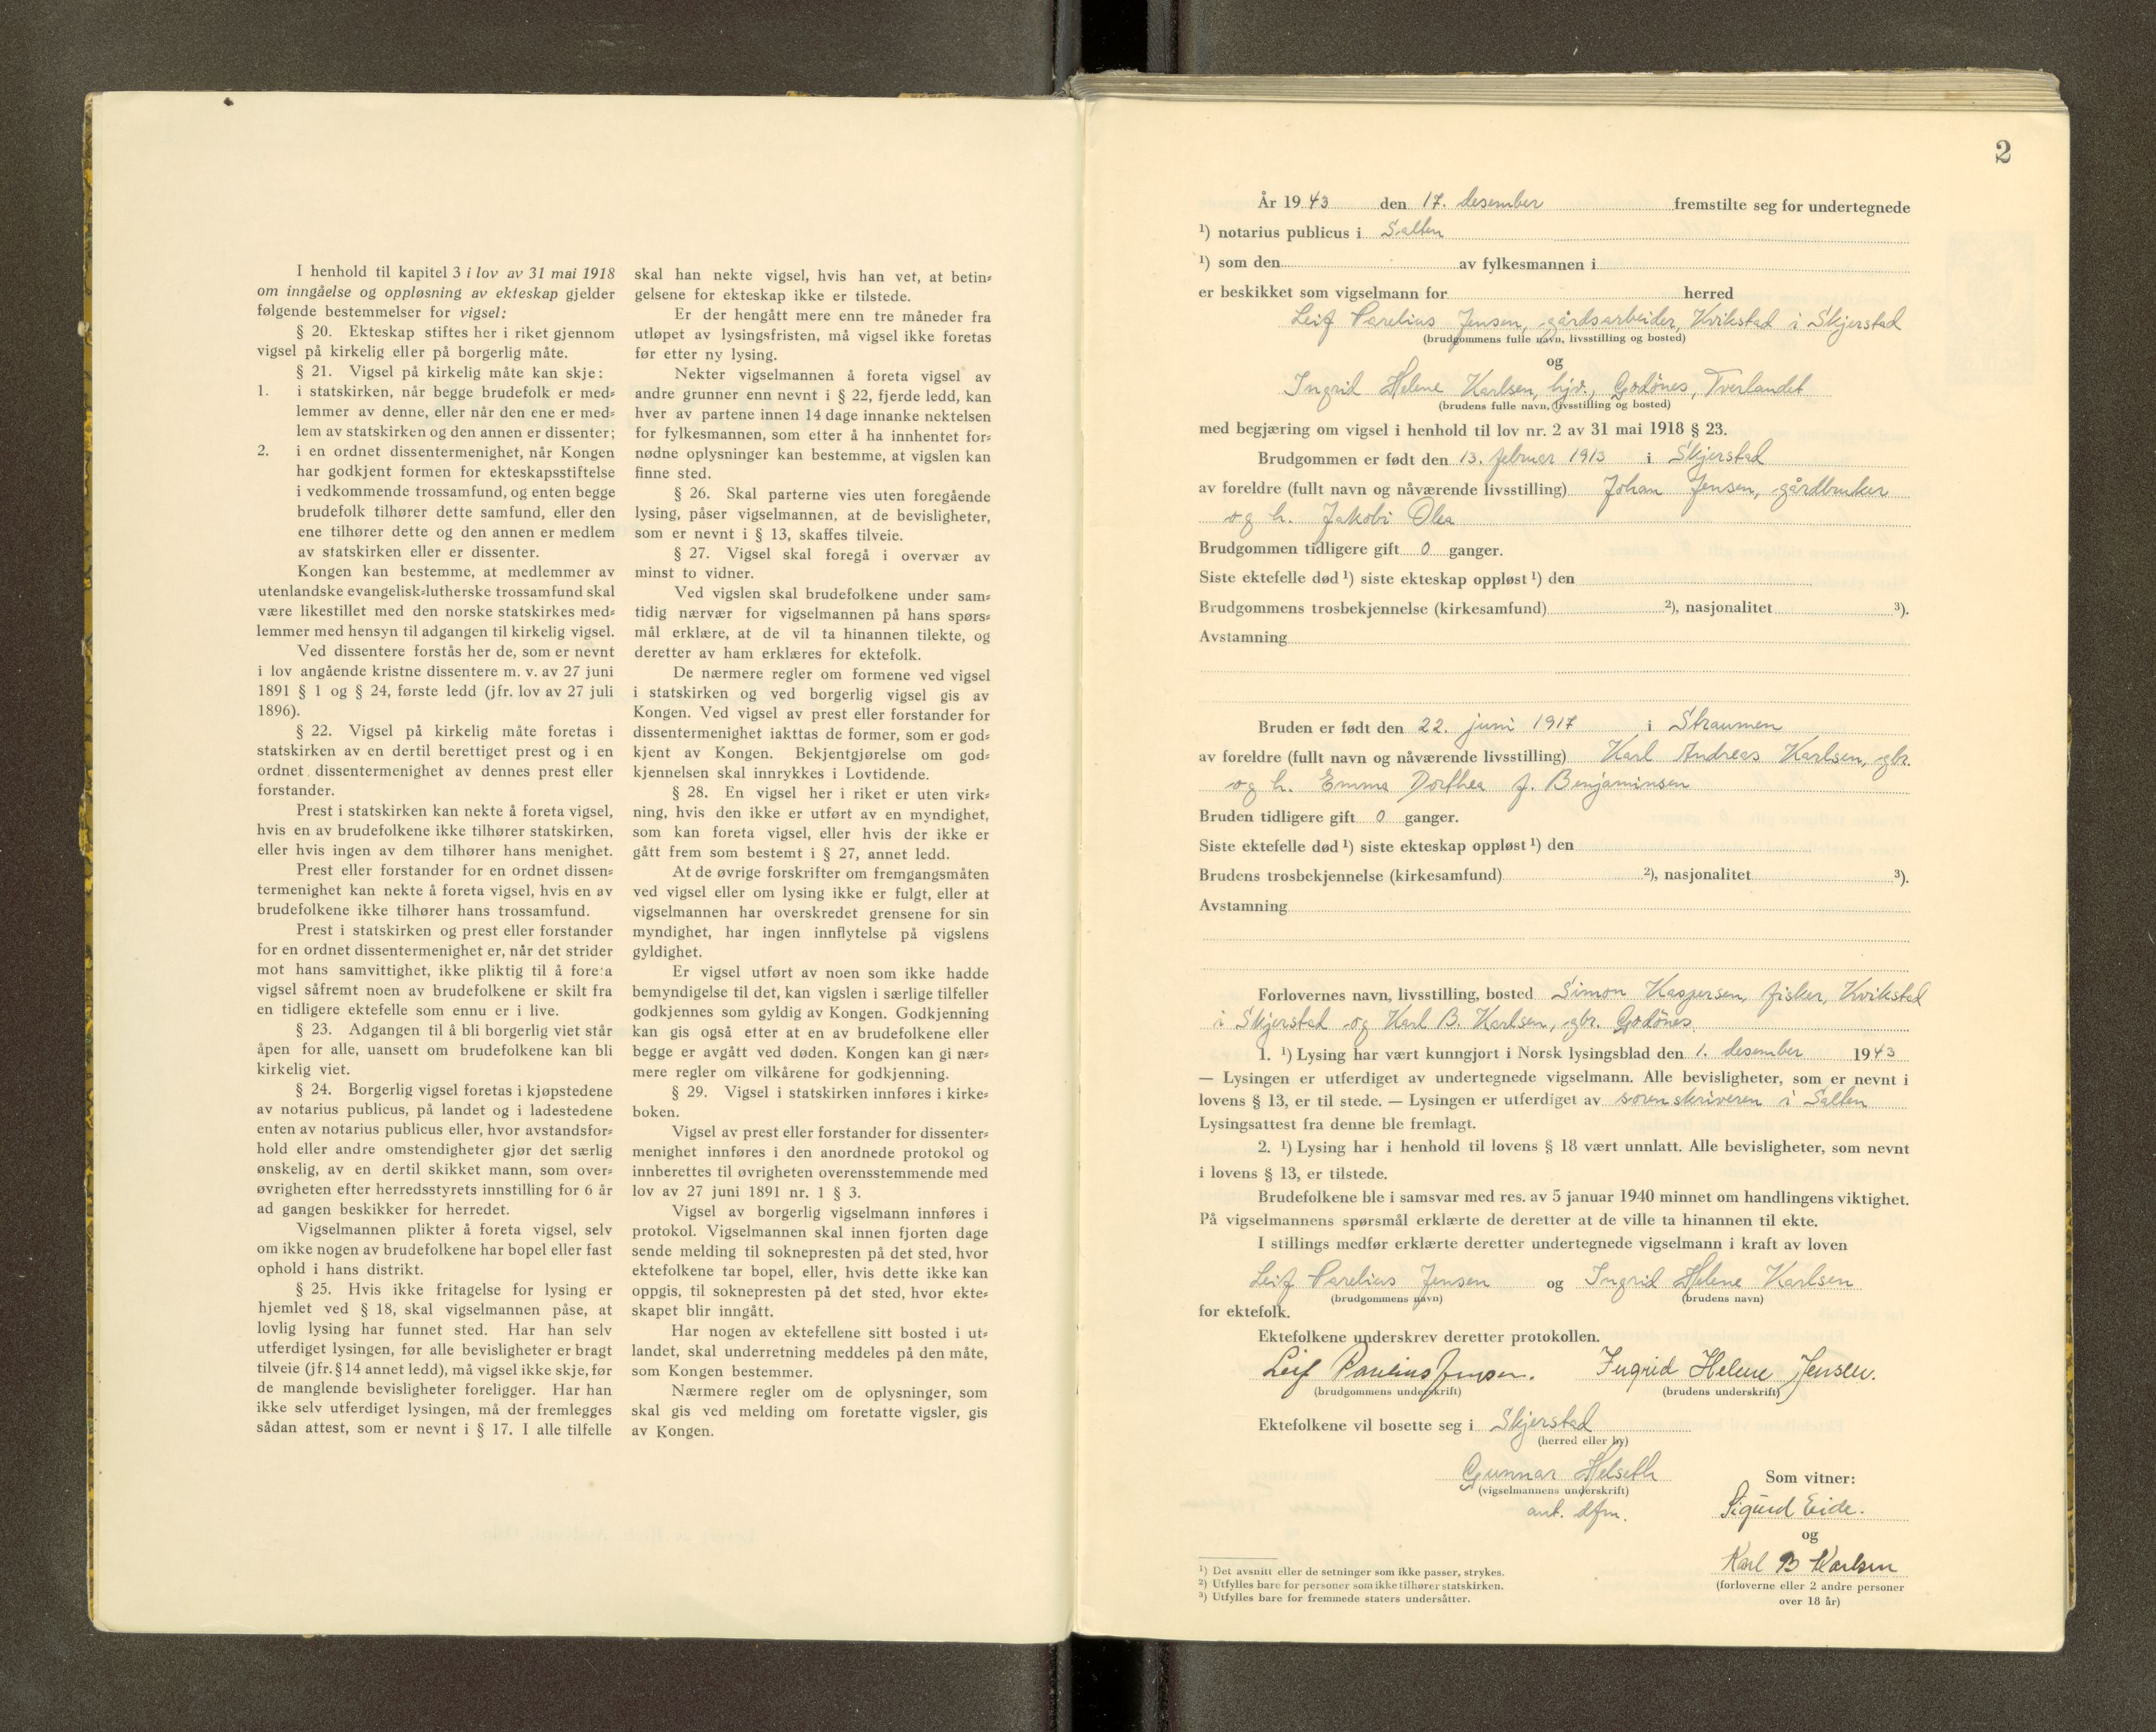 I henhold til kapitel 3 i lov av 31 mai 1918
om inngåelse og oppløsning av ekteskap gjelder
følgende bestemmelser for vigsel:
§ 20. Ekteskap stiftes her i riket gjennom
vigsel på kirkelig eller på borgerlig måte.
§ 21. Vigsel på kirkelig måte kan skje:
1. i statskirken, når begge brudefolk er med-
lemmer av denne, eller når den ene er med-
lem av statskirken og den annen er dissenter;
2. i en ordnet dissentermenighet, når Kongen
har godkjent formen for ekteskapsstiftelse
i vedkommende trossamfund, og enten begge
brudefolk tilhører dette samfund, eller den
ene tilhører dette og den annen er medlem
av statskirken eller er dissenter.
Kongen kan bestemme, at medlemmer av
utenlandske evangelisk-lutherske trossamfund skal
være likestillet med den norske statskirkes med-
lemmer med hensyn til adgangen til kirkelig vigsel.
Ved dissentere forstås her de, som er nevnt
i lov angående kristne dissentere m. v. av 27 juni
1891 § 1 og § 24, første ledd (jfr. lov av 27 juli
1896).
§ 22. Vigsel på kirkelig måte foretas i
statskirken av en dertil berettiget prest og i en
ordnet dissentermenighet av dennes prest eller
forstander.
Prest i statskirken kan nekte å foreta vigsel,
hvis en av brudefolkene ikke tilhører statskirken,
eller hvis ingen av dem tilhører hans menighet.
Prest eller forstander for en ordnet dissen-
termenighet kan nekte å foreta vigsel, hvis en av
brudefolkene ikke tilhører hans trossamfund.
Prest i statskirken og prest eller forstander
for en ordnet dissentermenighet er, når det strider
mot hans samvittighet, ikke pliktig til å foreta
vigsel såfremt noen av brudefolkene er skilt fra
en tidligere ektefelle som ennu er i live.
§ 23. Adgangen til å bli borgerlig viet står
åpen for alle, uansett om brudefolkene kan bli
kirkelig viet.
§ 24. Borgerlig vigsel foretas i kjøpstedene
av notarius publicus, på landet og i ladestedene
enten av notarius publicus eller, hvor avstandsfor-
hold eller andre omstendigheter gjør det særlig
ønskelig, av en dertil skikket mann, som over-
øvrigheten efter herredsstyrets innstilling for 6 år
ad gangen beskikker for herredet.
Vigselmannen plikter å foreta vigsel, selv
om ikke nogen av brudefolkene har bopel eller fast
ophold i hans distrikt.
§ 25. Hvis ikke fritagelse for lysing er
hjemlet ved § 18, skal vigselmannen påse, at
lovlig lysing har funnet sted. Har han selv
utferdiget lysingen, før alle bevisligheter er bragt
tilveie (jfr. § 14 annet ledd), må vigsel ikke skje, før
de manglende bevisligheter foreligger. Har han
ikke selv utferdiget lysingen, må der fremlegges
sådan attest, som er nevnt i § 17. I alle tilfelle
skal han nekte vigsel, hvis han vet, at betin-
gelsene for ekteskap ikke er tilstede.
Er der hengått mere enn tre måneder fra
utløpet av lysingsfristen, må vigsel ikke foretas
før etter ny lysing.
Nekter vigselmannen å foreta vigsel av
andre grunner enn nevnt i § 22, fjerde ledd, kan
hver av partene innen 14 dage innanke nektelsen
for fylkesmannen, som etter å ha innhentet for-
nødne oplysninger kan bestemme, at vigslen kan
finne sted.
§ 26. Skal parterne vies uten foregående
lysing, påser vigselmannen, at de bevisligheter,
som er nevnt i § 13, skaffes tilveie.
§ 27. Vigsel skal foregå i overvær av
minst to vidner.
Ved vigslen skal brudefolkene under sam-
tidig nærvær for vigselmannen på hans spørs-
mål erklære, at de vil ta hinannen tilekte, og
deretter av ham erklæres for ektefolk.
De nærmere regler om formene ved vigsel
i statskirken og ved borgerlig vigsel gis av
Kongen. Ved vigsel av prest eller forstander for
dissentermenighet iakttas de former, som er god-
kjent av Kongen. Bekjentgjørelse om god-
kjennelsen skal innrykkes i Lovtidende.
§ 28. En vigsel her i riket er uten virk-
ning, hvis den ikke er utført av en myndighet,
som kan foreta vigsel, eller hvis der ikke er
gått frem som bestemt i § 27, annet ledd.
At de øvrige forskrifter om fremgangsmåten
ved vigsel eller om lysing ikke er fulgt, eller at
vigselmannen har overskredet grensene for sin
myndighet, har ingen innflytelse på vigslens
gyldighet.
Er vigsel utført av noen som ikke hadde
bemyndigelse til det, kan vigslen i særlige tilfeller
godkjennes som gyldig av Kongen. Godkjenning
kan gis også etter at en av brudefolkene eller
begge er avgått ved døden. Kongen kan gi nær-
mere regler om vilkårene for godkjenning.
§ 29. Vigsel i statskirken innføres i kirke-
boken.
Vigsel av prest eller forstander for dissenter-
menighet innføres i den anordnede protokol og
innberettes til øvrigheten overensstemmende med
lov av 27 juni 1891 nr. 1 § 3.
Vigsel av borgerlig vigselmann innføres i
protokol. Vigselmannen skal innen fjorten dage
sende melding til soknepresten på det sted, hvor
ektefolkene tar bopel, eller, hvis dette ikke kan
oppgis, til soknepresten på det sted, hvor ekte-
skapet blir inngått.
Har nogen av ektefellene sitt bosted i ut-
landet, skal underretning meddeles på den måte,
som Kongen bestemmer.
Nærmere regler om de oplysninger, som
skal gis ved melding om foretatte vigsler, gis
av Kongen.
2
År 1943 den 17. desember fremstilte seg for undertegnede
1) notarius publicus i Salten
1) som den av fylkesmannen i
er beskikket som vigselmann for herred
Leif Parelius Jensen, gårdsarbeider, Kvikstad i Skjerstad
(brudgommens fulle navn, livsstilling og bosted)
og
Ingrid Helene Karlsen, hjv., Godönes, Tverlandet
(brudens fulle navn, livsstilling og bosted)
med begjæring om vigsel i henhold til lov nr. 2 av 31 mai 1918 § 23.
Brudgommen er født den 13. februar 1913 i Skjerstad
av foreldre (fullt navn og nåværende livsstilling) Johan Jensen, gårdbruker
og h. Jakobi Olea
Brudgommen tidligere gift 0 ganger.
Siste ektefelle død 1) siste ekteskap oppløst 1) den
Brudgommens trosbekjennelse (kirkesamfund) 2), nasjonalitet 3).
Avstamning
Bruden er født den 22. juni 1917 i Straumen
av foreldre (fullt navn og nåværende livsstilling) Karl Andreas Karlsen, gbr.
og h. Emma Dorthea f. Benjaminsen
Bruden tidligere gift 0 ganger.
Siste ektefelle død 1) siste ekteskap oppløst 1) den
Brudens trosbekjennelse (kirkesamfund) 2), nasjonalitet 3).
Avstamning
Forlovernes navn, livsstilling, bosted Simon Kaspersen, fisker, Kvikstad
i Skjerstad og Karl B. Karlsen, gbr. Godönes
1. 1) Lysing har vært kunngjort i Norsk lysingsblad den 1. desember 1943
— Lysingen er utferdiget av undertegnede vigselmann. Alle bevisligheter, som er nevnt i
lovens § 13, er til stede. — Lysingen er utferdiget av sorenskriveren i Salten
Lysingsattest fra denne ble fremlagt.
2. 1) Lysing har i henhold til lovens § 18 vært unnlatt. Alle bevisligheter, som nevnt
i lovens § 13, er tilstede.
Brudefolkene ble i samsvar med res. av 5 januar 1940 minnet om handlingens viktighet.
På vigselmannens spørsmål erklærte de deretter at de ville ta hinannen til ekte.
I stillings medfør erklærte deretter undertegnede vigselmann i kraft av loven
Leif Parelius Jensen og Ingrid Helene Karlsen
(brudgommens navn) (brudens navn)
for ektefolk.
Ektefolkene underskrev deretter protokollen.
Leif Parelius Jensen. Ingrid Helene Jensen.
(brudgommens underskrift) (brudens underskrift)
Ektefolkene vil bosette seg i Skjerstad
(herred eller by)
Gunnar Helseth
(vigselmannens underskrift)
aut. dfm.
Som vitner:
Sigurd Eide.
og
Karl B Karlsen
(forloverne eller 2 andre personer
over 18 år)
1) Det avsnitt eller de setninger som ikke passer, strykes.
2) Utfylles bare for personer som ikke tilhører statskirken.
3) Utfylles bare for fremmede staters undersåtter.